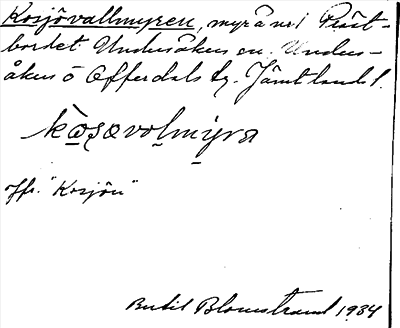 Kosjövallmyren, myr å nr 1 Präst-
bordet Undersåkers sn. Unders-
åkers o Offerdals tg. Jämtlands l.
kɷ̀ʂævo̱lmỳra
Jfr. "Kosjön"
Bertil Blomstrand 1934